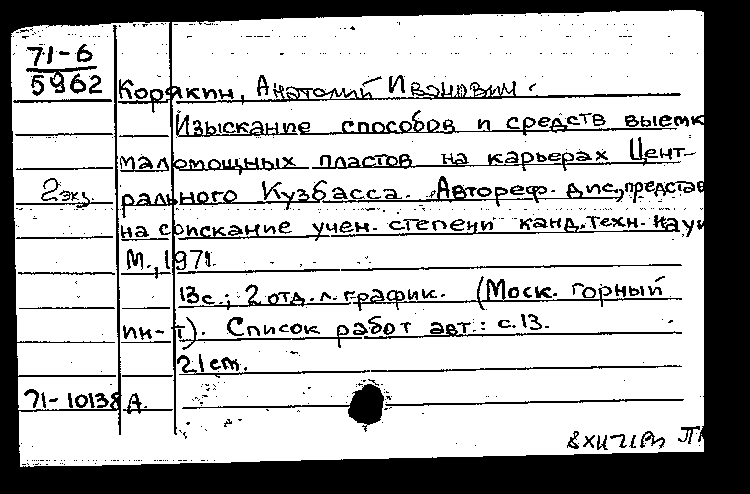 71-6
5962
Корякин, Анатолий Иванович.
Изыскание способов и средств выемк
маломощных пластов на карьерах Цент-
2 экз.
рального Кузбасса. Автореф. дис., представ
на соискание учен. степени канд. техн. наук
М., 1971.
13 с.; 2 отд. л. график. (Моск. горный
ин-т). Список работ авт.: с. 13.
21 см.
71-10138 А.